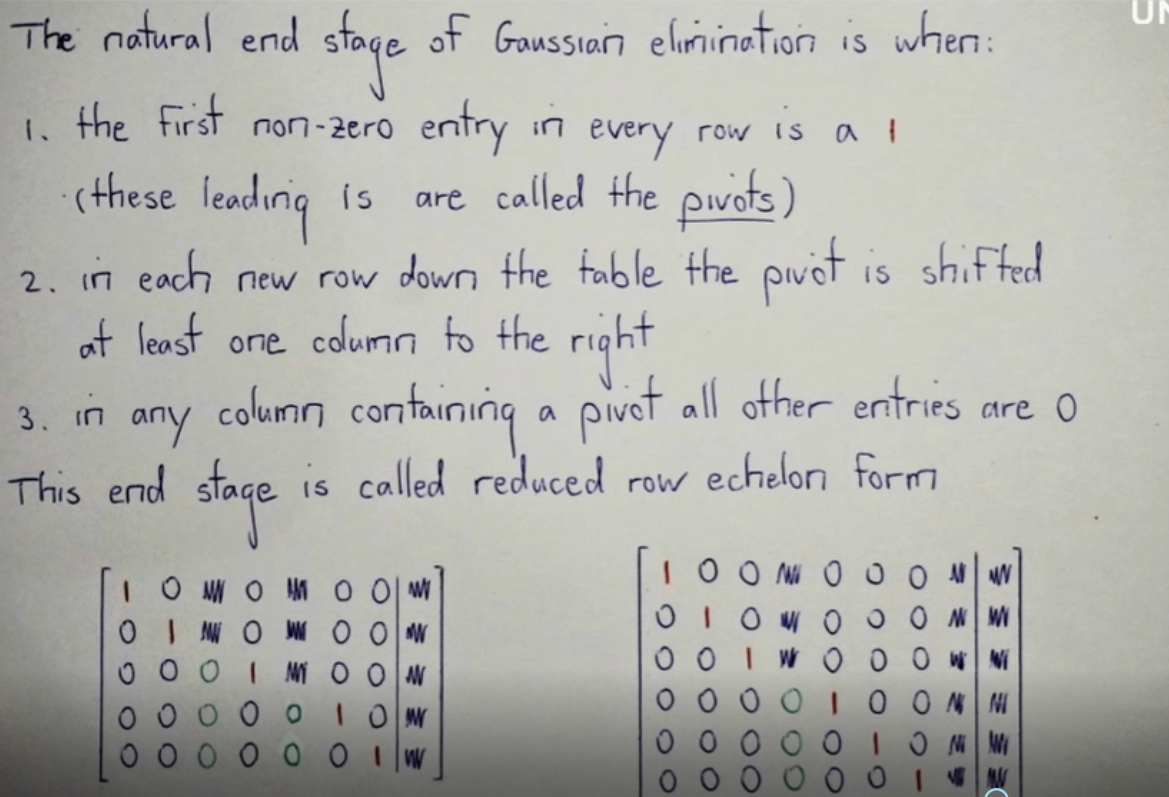 UN
The natural end stage of Gaussian elimination is when:
1. the first non-zero entry in every row is a 1
(these leading 1s are called the pivots)
2. in each new row down the table the pivot is shifted
at least one column to the right
3. in any column containing a pivot all other entries are 0
This end stage is called reduced row echelon form
1 0 0 0 0
0 1 0 0 0
0 0 0 1 0 0
0 0 0 0 0 1 0
0 0 0 0 0 0 1
1 0 0 0 0 0
0 1 0 0 0 0
0 0 1 0 0 0
0 0 0 0 1 0 0
0 0 0 0 0 1 0
0 0 0 0 0 0 1